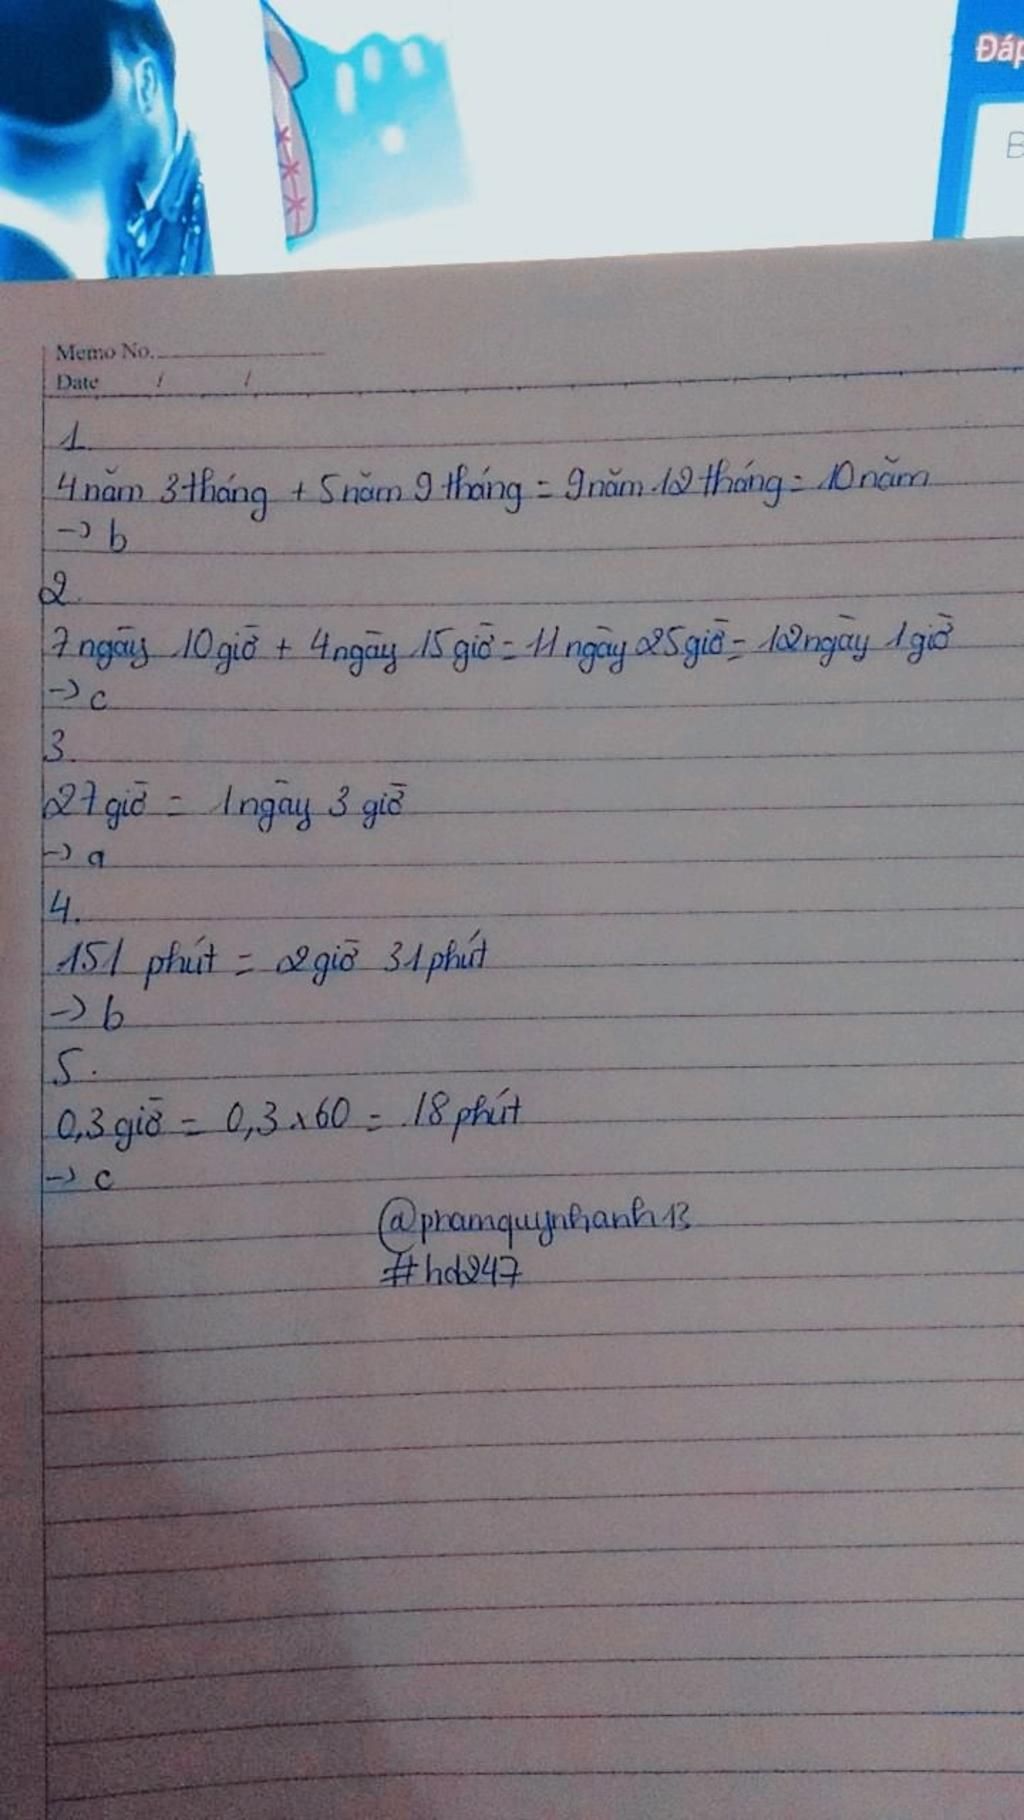 Đáp
B
Memo No.
Date / /
1.
4 năm 3 tháng + 5 năm 9 tháng = 9 năm 12 tháng = 10 năm
-> b
2.
7 ngày 10 giờ + 4 ngày 15 giờ = 11 ngày 25 giờ = 12 ngày 1 giờ
-> c
3.
27 giờ = 1 ngày 3 giờ
-> a
4.
151 phút = 2 giờ 31 phút
-> b
5.
0,3 giờ = 0,3 x 60 = 18 phút
-> c
@phamquynhanh13
#hd247